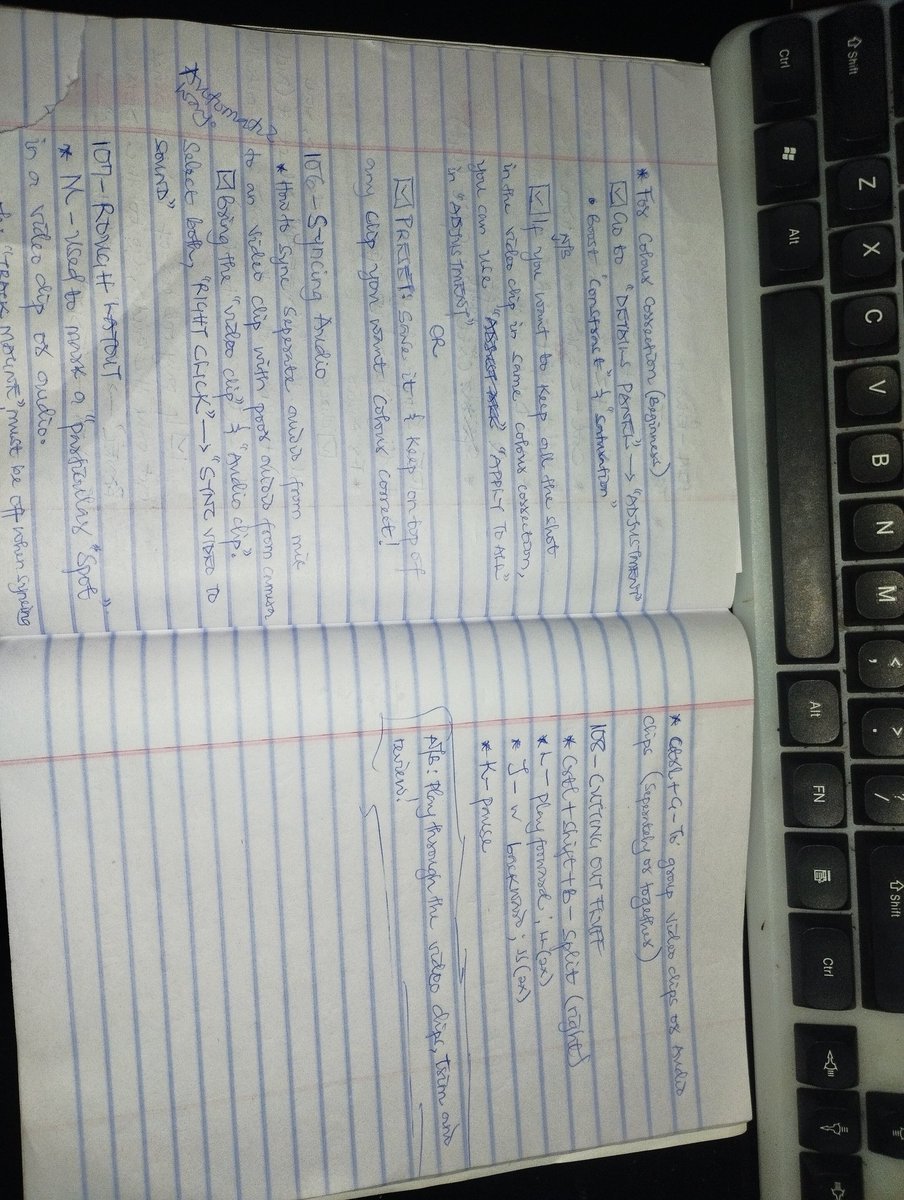 * For Colour Correction (Beginners)
☑ Go to "DETAILS PANEL" → "ADJUSTMENT"
• Boost "Constrast" & "Saturation"
N/B
☑ If you want to keep all the shot
in the video clip in same colour correction,
you can use "APPLY TO ALL"
in "ADJUSTMENT"
OR
☑ PRESET: Save it & keep on top of
any clip you want colour correct!
106 - Syncing Audio
* How to sync seperate audio from mic
to an video clip with poor audio from camera
* Automatic
way:
☑ Bring the "video clip" & "Audio clip"
Select both, "RIGHT CLICK" → "SYNC VIDEO TO
SOUND"
107 - ROUGH LAYOUT
* M - used to mark a "particular "Spot"
in a video clip or audio.
the "TRACK MAGNET" must be off when syncing
* Ctrl + G - To group video clips or Audio
clips (seperately or together)
108 - CUTTING OUT FLUFF
* Ctrl + shift + B - Split (right)
* L - play forward ; LL (2x)
* J - " backward ; JJ (2x)
* K - pause
N/B: Play through the video clips, trim and
review!
Ctrl
Shift
Alt
Z
X
C
V
B
N
M
<
,
>
.
?
/
Alt
FN
Ctrl
Shift